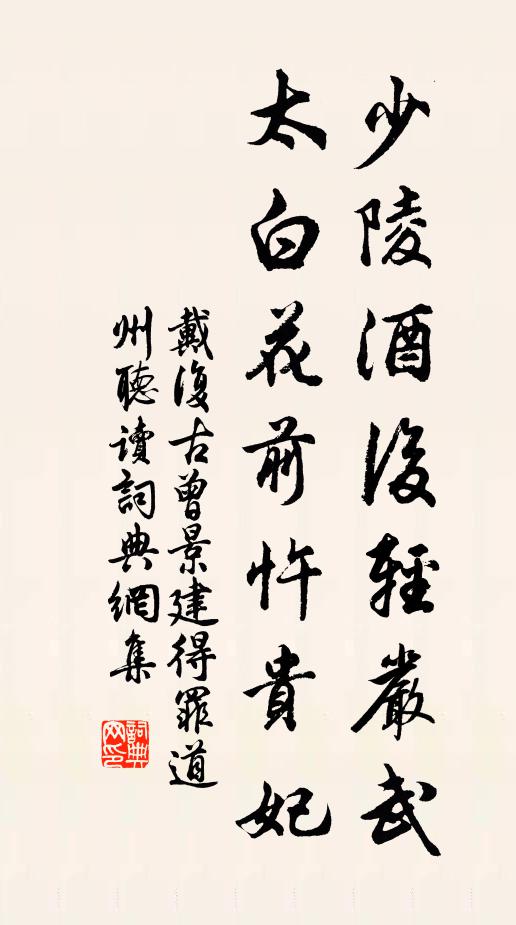 少陵酒後輕嚴武
太白花前忤貴妃
戴復古曾景建得罪道
州聽讀詞典網集
詞典
网印